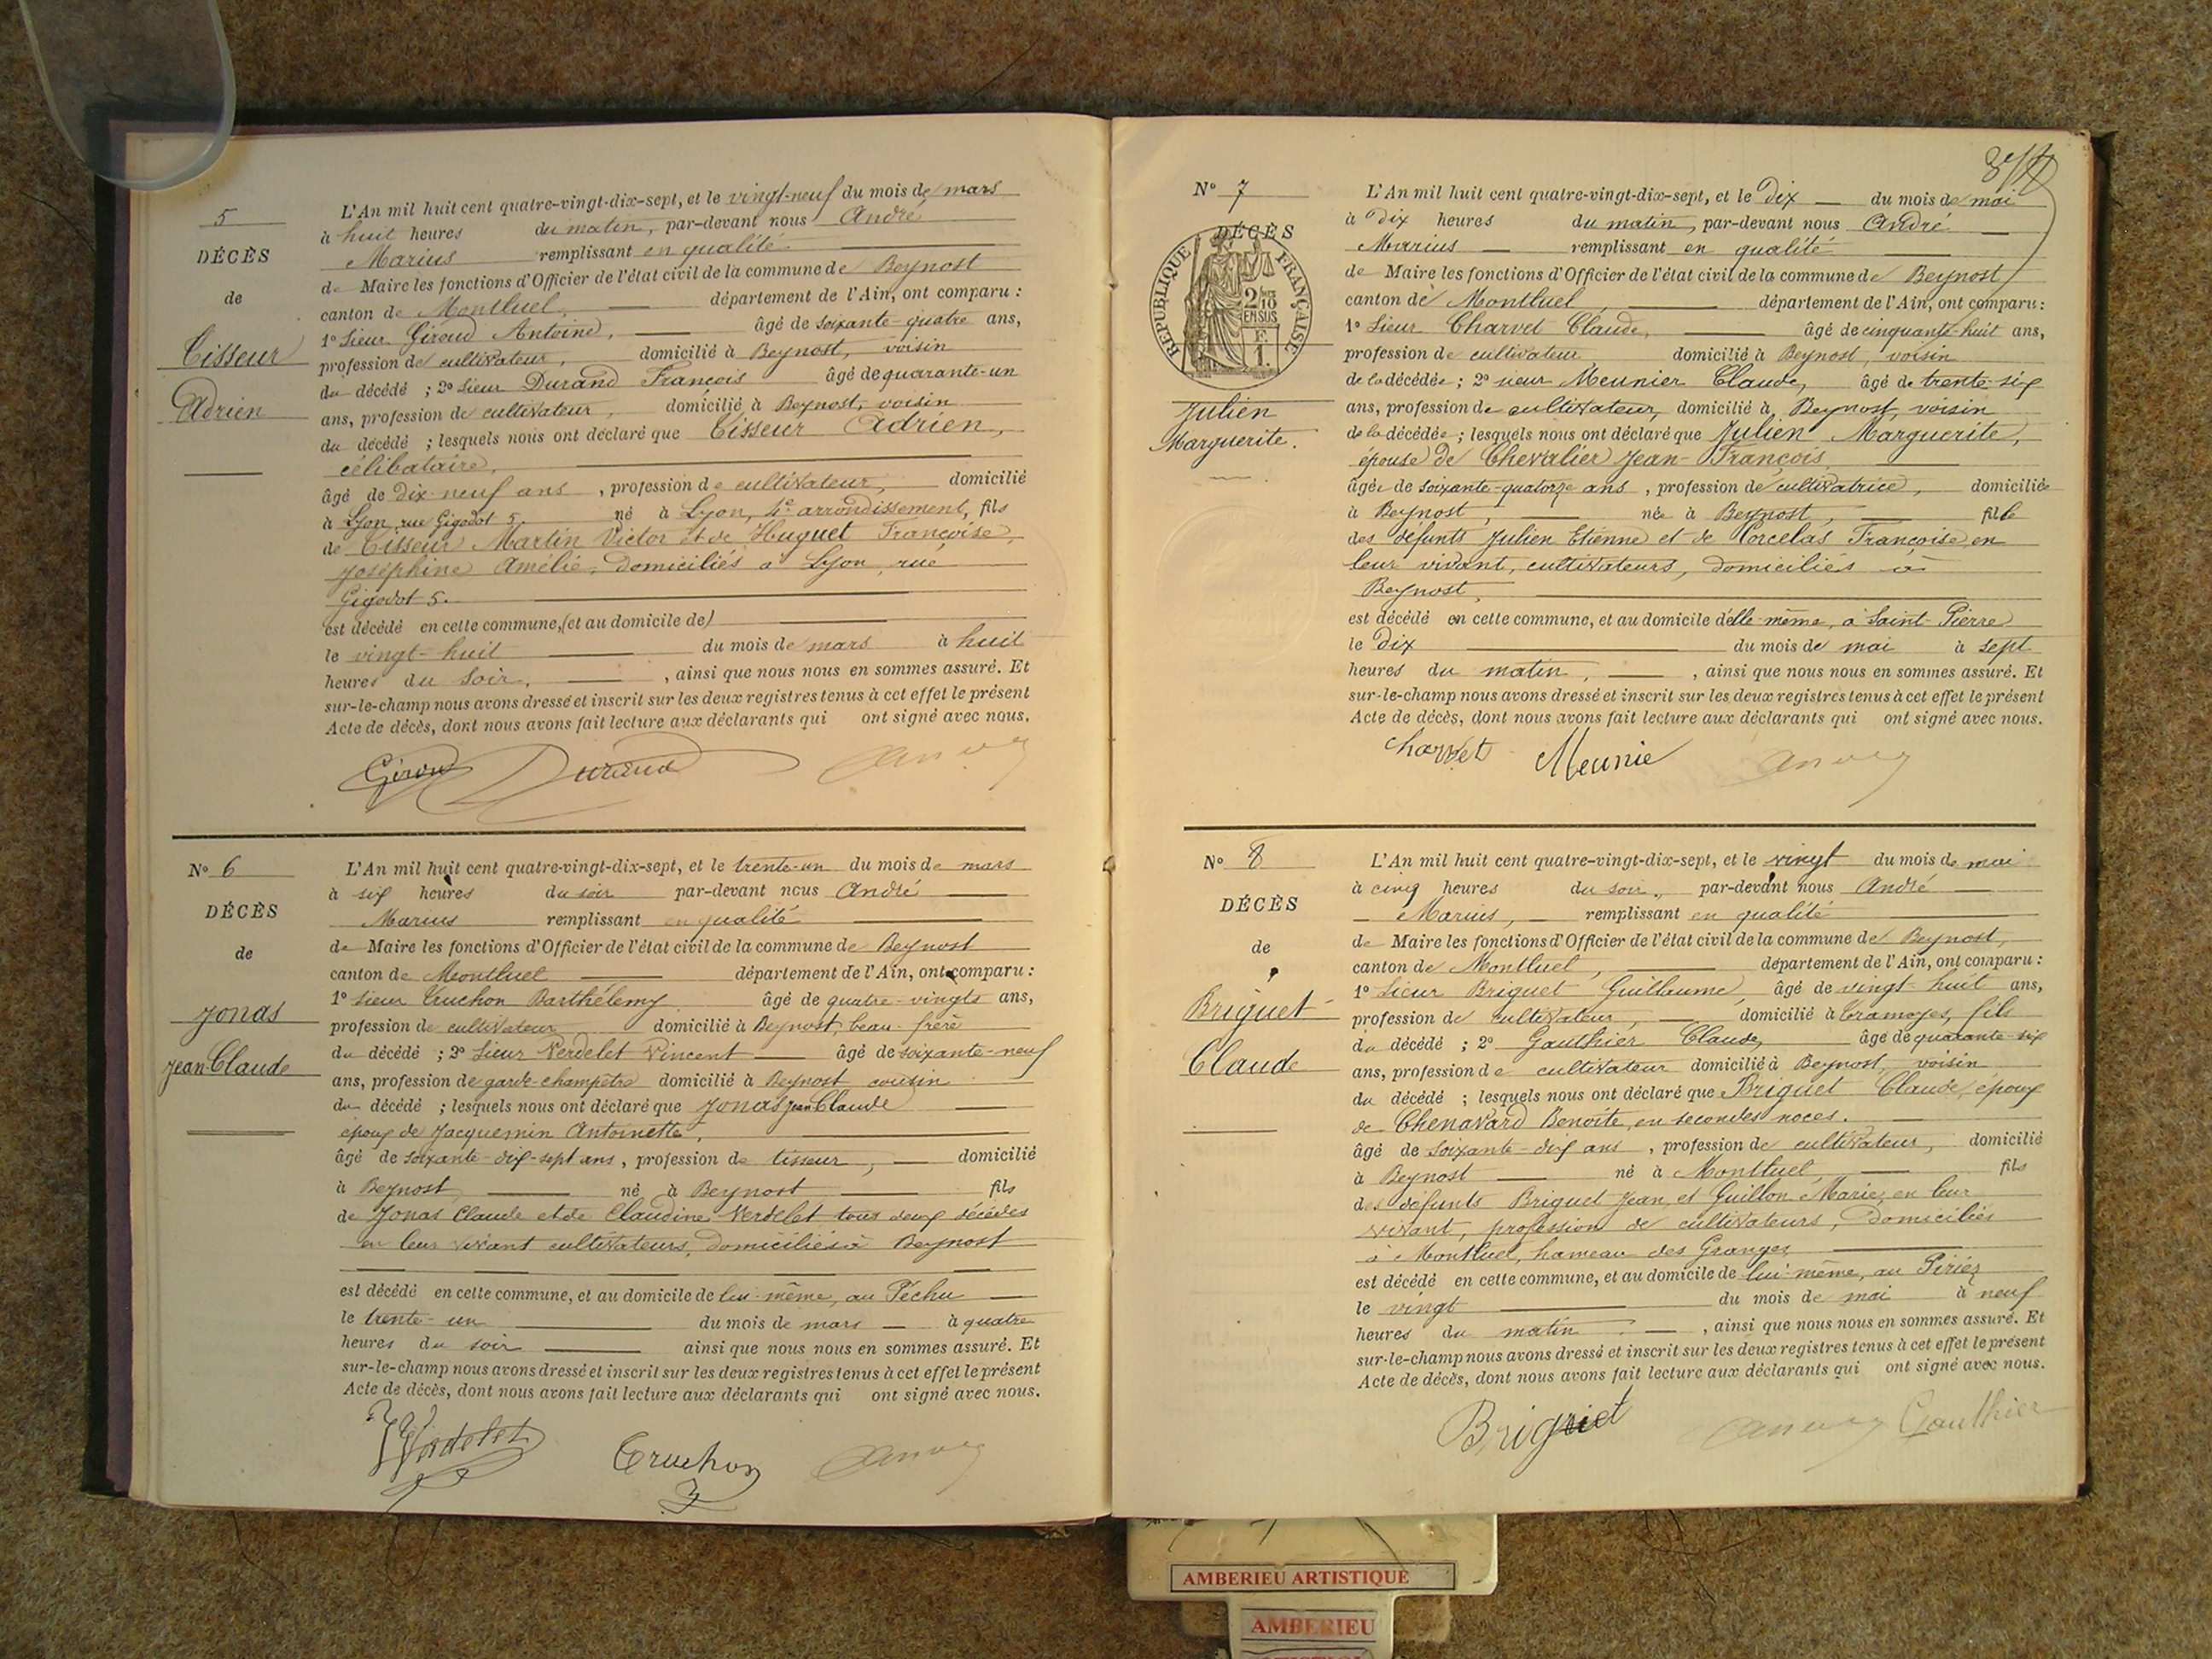 5
DÉCÈS
de
Tisseur
Adrien
L'An mil huit cent quatre-vingt-dix-sept, et le vingt-neuf du mois de mars
à huit heures du matin, par-devant nous André
Marius remplissant en qualité
de Maire les fonctions d'Officier de l'état civil de la commune de Beynost
canton de Montluel, département de l'Ain, ont comparu :
1° Sieur Giroud Antoine, âgé de soixante-quatre ans,
profession de cultivateur, domicilié à Beynost, voisin
du décédé ; 2° Sieur Durand François âgé de quarante-un
ans, profession de cultivateur, domicilié à Beynost, voisin
du décédé ; lesquels nous ont déclaré que Tisseur Adrien,
célibataire,
âgé de dix-neuf ans, profession de cultivateur, domicilié
à Lyon, rue Gigodot 5. né à Lyon, 4e arrondissement, fils
de Tisseur Martin Victor et de Huguet Françoise,
Joséphine Amélie, domiciliés à Lyon, rue
Gigodot 5.
est décédé en cette commune, (et au domicile de)
le vingt-huit du mois de mars à huit
heures du soir, , ainsi que nous nous en sommes assuré. Et
sur-le-champ nous avons dressé et inscrit sur les deux registres tenus à cet effet le présent
Acte de décès, dont nous avons fait lecture aux déclarants qui ont signé avec nous.
Giroud Durand
N° 6
DÉCÈS
de
Jonas
Jean-Claude
L'An mil huit cent quatre-vingt-dix-sept, et le trente-un du mois de mars
à six heures du soir par-devant nous André
Marius remplissant en qualité
de Maire les fonctions d'Officier de l'état civil de la commune de Beynost
canton de Montluel département de l'Ain, ont comparu :
1° Sieur Truchon Barthélemy âgé de quatre-vingts ans,
profession de cultivateur domicilié à Beynost, beau-frère
du décédé ; 2° Sieur Verdelet Vincent âgé de soixante-neuf
ans, profession de garde-champêtre domicilié à Beynost cousin
du décédé ; lesquels nous ont déclaré que Jonas Jean Claude
époux de Jacquemin Antoinette,
âgé de soixante-dix-sept ans, profession de tisseur, domicilié
à Beynost, né à Beynost fils
de Jonas Claude et de Claudine Verdelet tous deux décédés
en leur vivant cultivateurs, domiciliés à Beynost
est décédé en cette commune, et au domicile de lui-même, au Péchu
le trente-un du mois de mars à quatre
heures du soir ainsi que nous nous en sommes assuré. Et
sur-le-champ nous avons dressé et inscrit sur les deux registres tenus à cet effet le présent
Acte de décès, dont nous avons fait lecture aux déclarants qui ont signé avec nous.
Verdelet Truchon
N° 7
DÉCÈS
RÉPUBLIQUE FRANÇAISE
2/10 EN SUS
F. 1.
Julien
Marguerite.
L'An mil huit cent quatre-vingt-dix-sept, et le dix du mois de mai
à dix heures du matin, par-devant nous André
Marius remplissant en qualité
de Maire les fonctions d'Officier de l'état civil de la commune de Beynost
canton de Montluel département de l'Ain, ont comparu :
1° Sieur Charvet Claude, âgé de cinquante-huit ans,
profession de cultivateur domicilié à Beynost, voisin
de la décédée ; 2° sieur Meunier Claude, âgé de trente-six
ans, profession de cultivateur, domicilié à Beynost, voisin
de la décédée ; lesquels nous ont déclaré que Julien Marguerite,
épouse de Chevalier Jean-François,
âgée de soixante-quatorze ans, profession de cultivatrice, domiciliée
à Beynost, née à Beynost, fille
des défunts Julien Etienne et de Porcelas Françoise, en
leur vivant, cultivateurs, domiciliés à
Beynost,
est décédé en cette commune, et au domicile d'elle-même, à Saint-Pierre
le dix du mois de mai à sept
heures du matin, , ainsi que nous nous en sommes assuré. Et
sur-le-champ nous avons dressé et inscrit sur les deux registres tenus à cet effet le présent
Acte de décès, dont nous avons fait lecture aux déclarants qui ont signé avec nous.
Charvet Meunie
N° 8
DÉCÈS
de
Briguet
Claude
L'An mil huit cent quatre-vingt-dix-sept, et le vingt du mois de mai
à cinq heures du soir, par-devant nous André
Marius, remplissant en qualité
de Maire les fonctions d'Officier de l'état civil de la commune de Beynost,
canton de Montluel, département de l'Ain, ont comparu :
1° Sieur Briguet Guillaume, âgé de vingt-huit ans,
profession de cultivateur, domicilié à Tramoyes, fils
du décédé ; 2° Gauthier Claude, âgé de quarante-six
ans, profession de cultivateur domicilié à Beynost, voisin
du décédé ; lesquels nous ont déclaré que Briguet Claude, époux
de Chenavard Benoîte, en secondes noces.
âgé de soixante-dix ans, profession de cultivateur, domicilié
à Beynost né à Montluel, fils
des défunts Briguet Jean, et Guillon Marie, en leur
vivant, profession de cultivateurs, domiciliés
à Montluel, hameau des Granges
est décédé en cette commune, et au domicile de lui-même, au Piriez
le vingt du mois de mai à neuf
heures du matin , ainsi que nous nous en sommes assuré. Et
sur-le-champ nous avons dressé et inscrit sur les deux registres tenus à cet effet le présent
Acte de décès, dont nous avons fait lecture aux déclarants qui ont signé avec nous.
Briguet Gauthier
AMBERIEU ARTISTIQUE
AMBERIEU